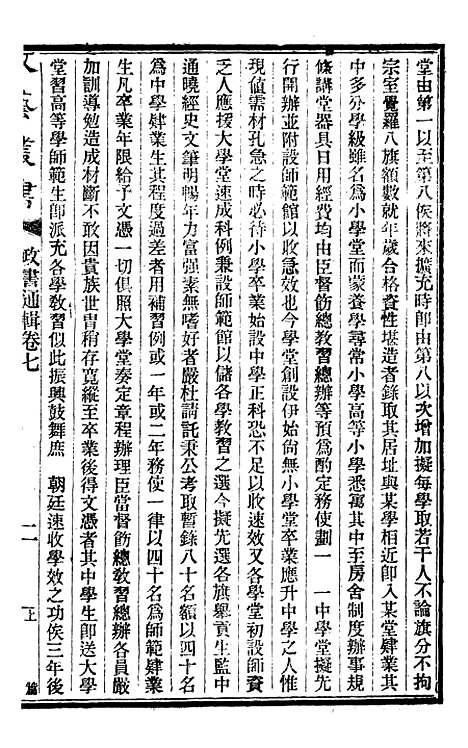 堂由第一以至第八俟將來擴充時卽由第八以次增加擬每學取若干人不論旗分不拘
宗室覺羅八旗額數就年歲合格資性堪造者錄取其居址與某學相近卽入某堂肄業其
中多分學級雖名爲小學堂而蒙養學尋常小學高等小學悉寓其中至房舍制度辦事規
條講堂器具日用經費均由臣督飭總教習總辦等預爲酌定務使劃一　一中學堂擬先
行開辦並附設師範館以收急效也今學堂創設伊始尙無小學堂卒業應升中學之人惟
現値需材孔急之時必待小學卒業始設中學正科恐不足以收速效又各學堂初設師資
乏人應援大學堂速成科例兼設師範館以儲各學教習之選今擬先選各旗舉貢生監中
通曉經史文筆明暢年力富强素無嗜好者嚴杜請託秉公考取暫錄八十名額以四十名
爲中學肄業生其程度過差者用補習例或一年或二年務使一律以四十名爲師範肄業
生凡卒業年限給予文憑一切俱照大學堂奏定章程辦理臣當督飭總教習總辦各員嚴
加訓導勉造成材斷不敢因貴族世胄稍存寬縱至卒業後得文憑者其中學生卽送大學
堂習高等學師範生卽派充各學教習似此振興鼓舞庶　朝廷速收學效之功俟三年後
政書通輯卷七
二一
上